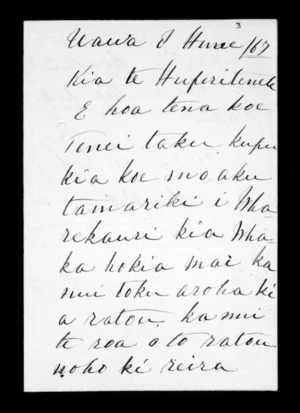 3
Uawa 8 Hune /67
Kia te Huperitene
E hoa tena koe
Tenei taku kupu
kia koe mo aku
tamariki i Wha
rekauri kia Wha
ka hokia mai ka
nui toku aroha ki
a ratou. ka nui
te roa o to ratou
noho ki reira